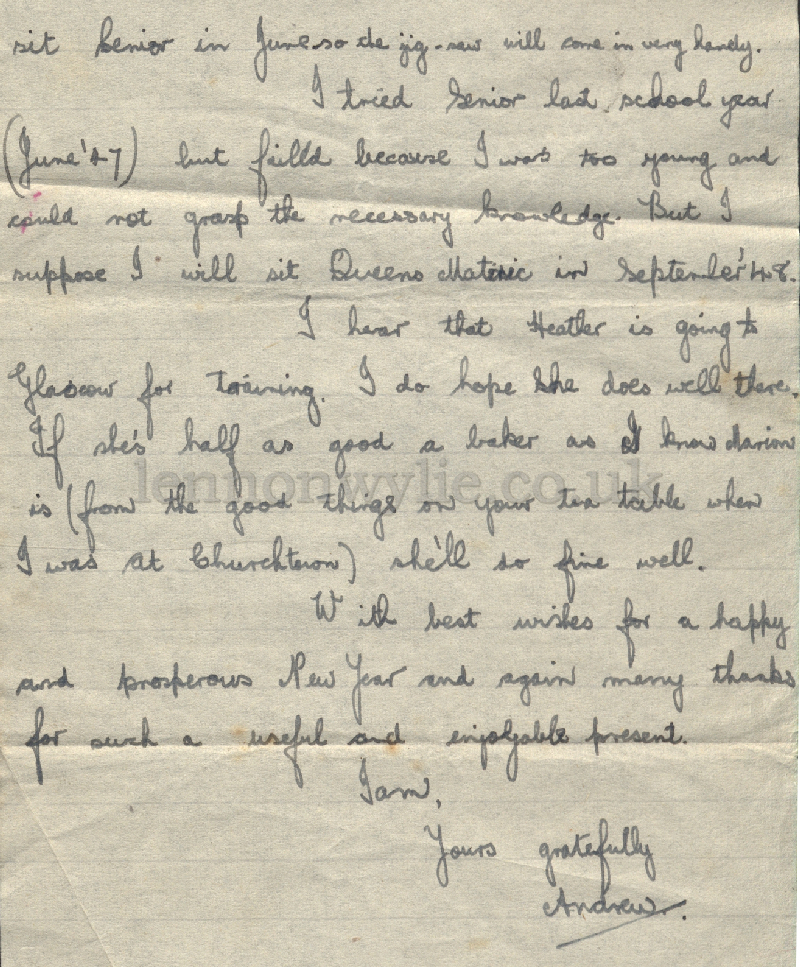 sit Senior in June so the jig-saw will come in very handy.
I tried Senior last school year
(June '47) but failld because I was too young and
could not grasp the necessary knowledge. But I
suppose I will sit Queens Matric in September '48.
I hear that Heather is going to
Glascow for training. I do hope she does well there.
If she's half as good a baker as I know Marion
is (from the good things on your tea table when
I was at Churchtown) she'll so fine well.
With best wishes for a happy
and prosperous New Year and again many thanks
for such a useful and enjoyable present.
I am,
Yours gratefully
Andrew.
lennonwylie.co.uk